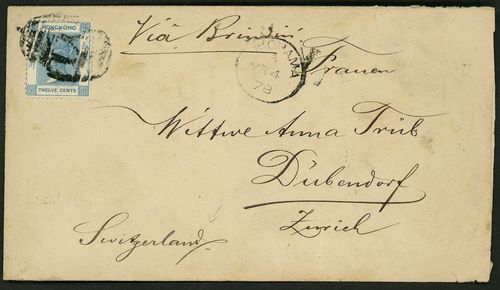 HONGKONG
TWELVE CENTS
Viâ Brindisi
YOKOHAMA
78
Frauen
Wittwe Anna Trüb
Dübendorf
Zurich
Switzerland